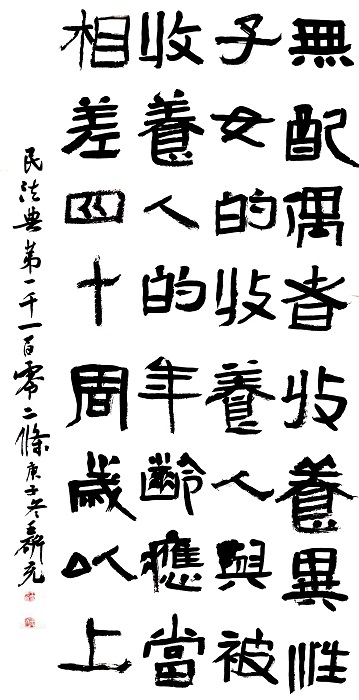 無配偶者收養異性
子女的收養人與被
收養人的年齡應當
相差四十周歲以上
民法典第一千一百零二條 庚子冬 王辥元